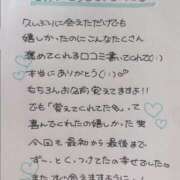 久しぶりに会えただけでも
嬉しかったのにこんなたくさん
褒めてくれる口コミ書いてくれて
本当にありがとう
もちろんお名前覚えてますよ!!
でも「覚えてくれてた💪」って
喜んでくれたの嬉しかった 笑
今回も最初から最後まで
ずーっとくっつけてたの幸せでした。
また 会えますように